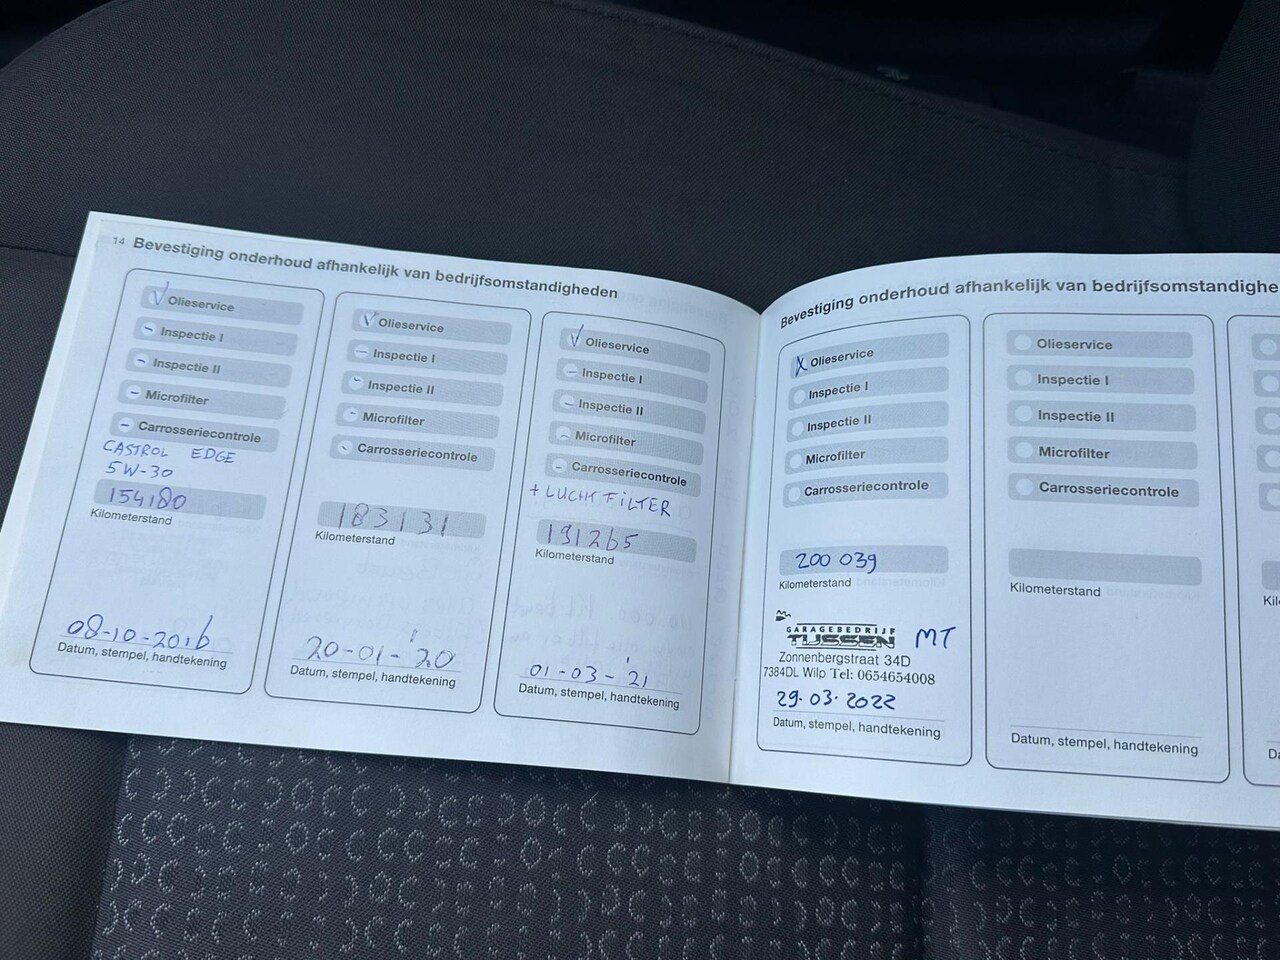 14 Bevestiging onderhoud afhankelijk van bedrijfsomstandigheden
√ Olieservice
- Inspectie I
- Inspectie II
- Microfilter
- Carrosseriecontrole
CASTROL EDGE
5W-30
154180
Kilometerstand
08-10-2016
Datum, stempel, handtekening
√ Olieservice
- Inspectie I
- Inspectie II
- Microfilter
- Carrosseriecontrole
183131
Kilometerstand
20-01-'20
Datum, stempel, handtekening
√ Olieservice
- Inspectie I
- Inspectie II
- Microfilter
- Carrosseriecontrole
+ LUCHTFILTER
191265
Kilometerstand
01-03-'21
Datum, stempel, handtekening
Bevestiging onderhoud afhankelijk van bedrijfsomstandighe
X Olieservice
Inspectie I
Inspectie II
Microfilter
Carrosseriecontrole
200 039
Kilometerstand
GARAGEBEDRIJF
TIJSSEN MT
Zonnenbergstraat 34D
7384DL Wilp Tel: 0654654008
29-03-2022
Datum, stempel, handtekening
Olieservice
Inspectie I
Inspectie II
Microfilter
Carrosseriecontrole
Kilometerstand
Datum, stempel, handtekening
Kil
Da